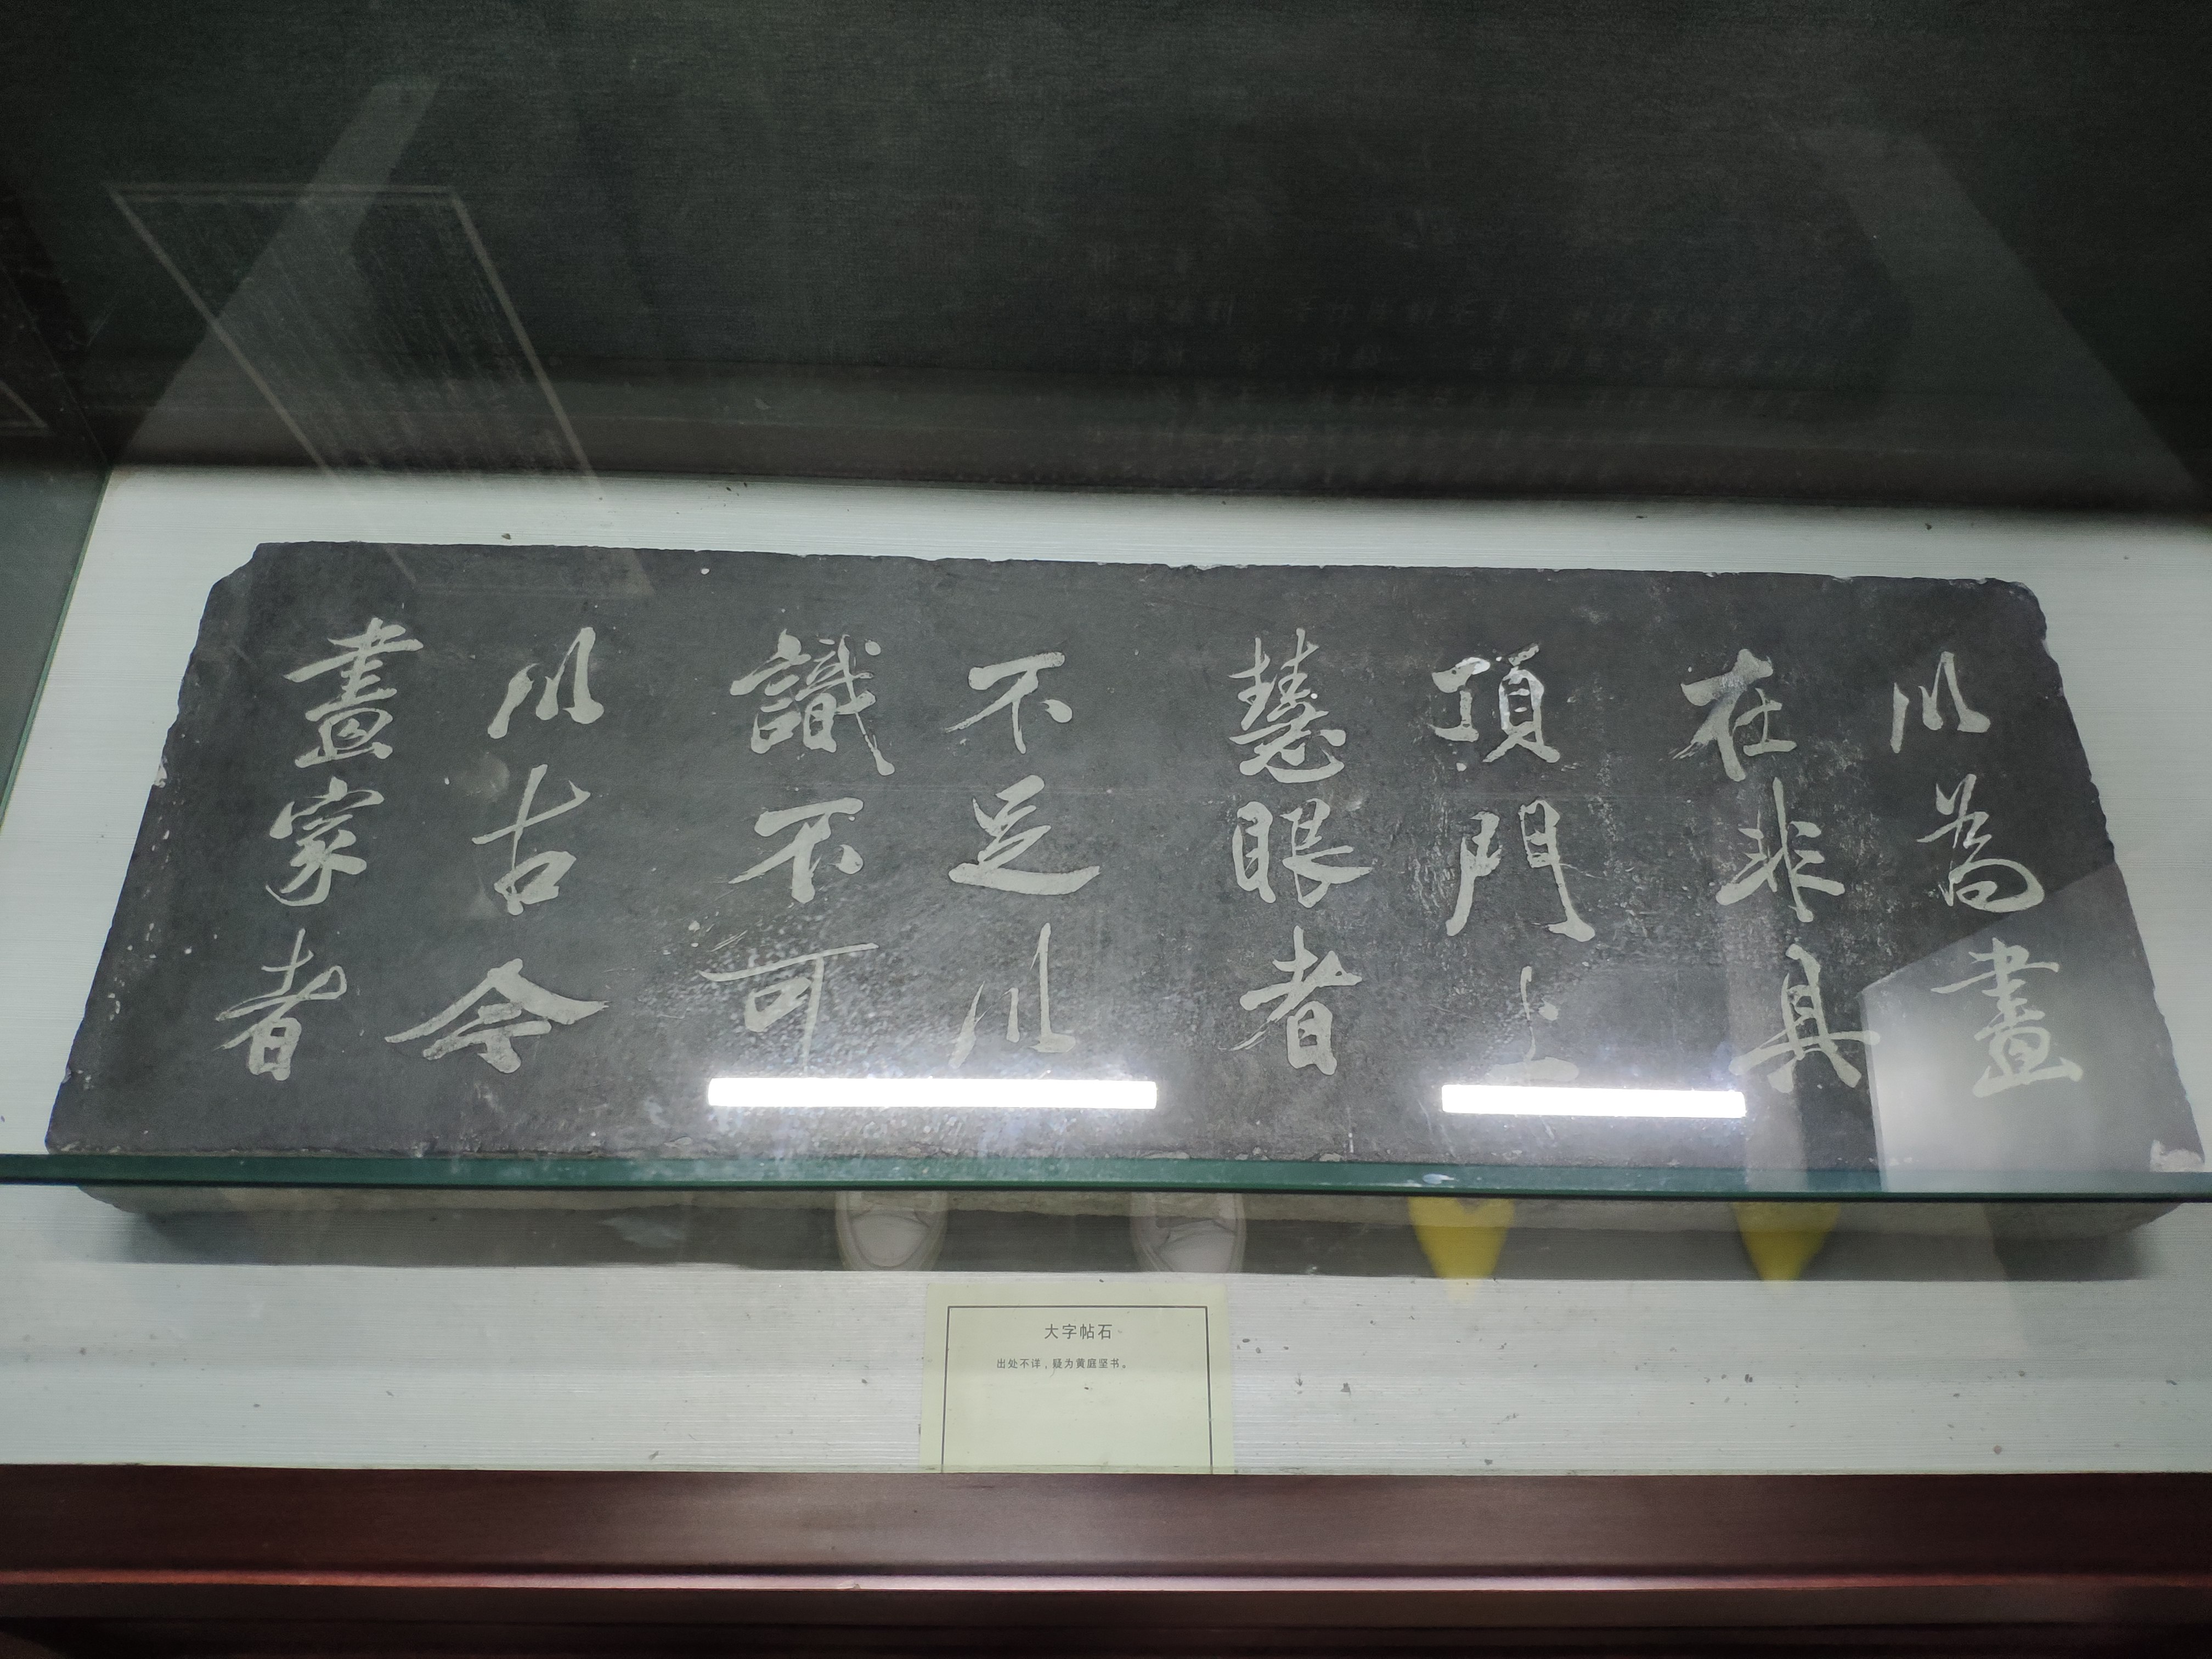 以為畫
在非具
頂門上
慧眼者
不足以
識不可
以古今
畫家者
大字帖石
出处不详，疑为黄庭坚书。